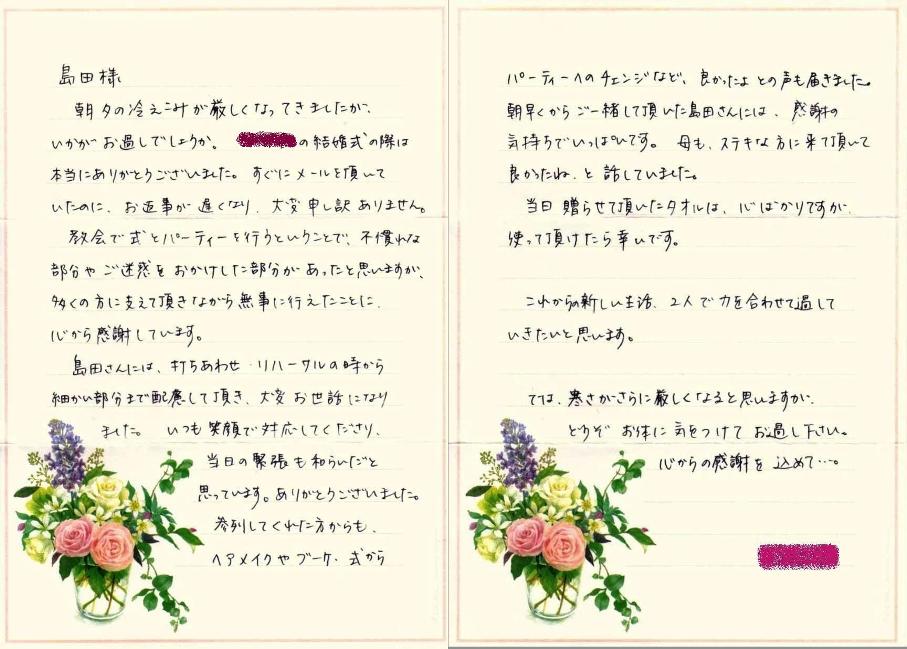 島田様
朝夕の冷えこみが厳しくなってきましたが、
いかがお過しでしょうか。 の結婚式の際は
本当にありがとうございました。すぐにメールを頂いて
いたのに、お返事が遅くなり、大変申し訳ありません。
教会で式とパーティーを行うということで、不慣れな
部分やご迷惑をおかけした部分があったと思いますが、
多くの方に支えて頂きながら無事に行えたことに、
心から感謝しています。
島田さんには、打ちあわせ・リハーサルの時から
細かい部分まで配慮して頂き、大変お世話になり
ました。いつも笑顔で対応してくださり、
当日の緊張も和らいだと
思っています。ありがとうございました。
参列してくれた方からも、
ヘアメイクやブーケ、式から
パーティーへのチェンジなど、良かったよとの声も届きました。
朝早くからご一緒して頂いた島田さんには、感謝の
気持ちでいっぱいです。母も、ステキな方に来て頂いて
良かったね、と話していました。
当日贈らせて頂いたタオルは、心ばかりですが、
使って頂けたら幸いです。
これからの新しい生活、2人で力を合わせて過して
いきたいと思います。
では、寒さがさらに厳しくなると思いますが、
どうぞお体に気をつけてお過し下さい。
心からの感謝を込めて…。